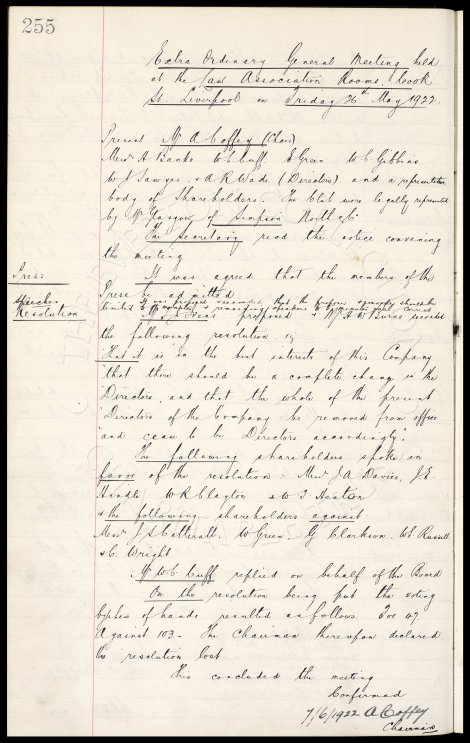 255
Extra Ordinary General Meeting held
at the Law Association Rooms Cook
St. Liverpool on Friday 26th May 1922.
Present Mr A Coffey (Chair)
Messrs H Banks W C Cuff E Green W C Gibbins
W J Sawyer & A R Wade (Directors) and a representative
body of Shareholders. The Club were legally represented
by Mr Glasgow of Simpson North & Co
The Secretary read the notice convening
the meeting
Press
It was agreed that the members of the
Press be admitted
Speeches
It was proposed seconded, that the speeches should be
limited to minutes, remaining speakers to carried
Resolution
Mr proposed Mr H W Davies seconded
the following resolution. 1/
"That it is in the best interests of this Company
"that there should be a complete change in the
"Directors, and that the whole of the present
"Directors of the Company be removed from office
"and cease to be Directors accordingly".
The following shareholders spoke in
favor of the resolution: Messrs J A Davies, J. E.
Hindle W R Clayton & W J Heaton
& the following shareholders against
Messrs J S Catterall. W Green. G Clarkson. W E Russell
& C. Wright
Mr W C Cuff replied on behalf of the Board
On the resolution being put the voting
by show of hands resulted as follows For 47
Against 103 - The Chairman thereupon declared
the resolution lost.
This concluded the meeting
Confirmed
7/6/1922 A Coffey
Chairman